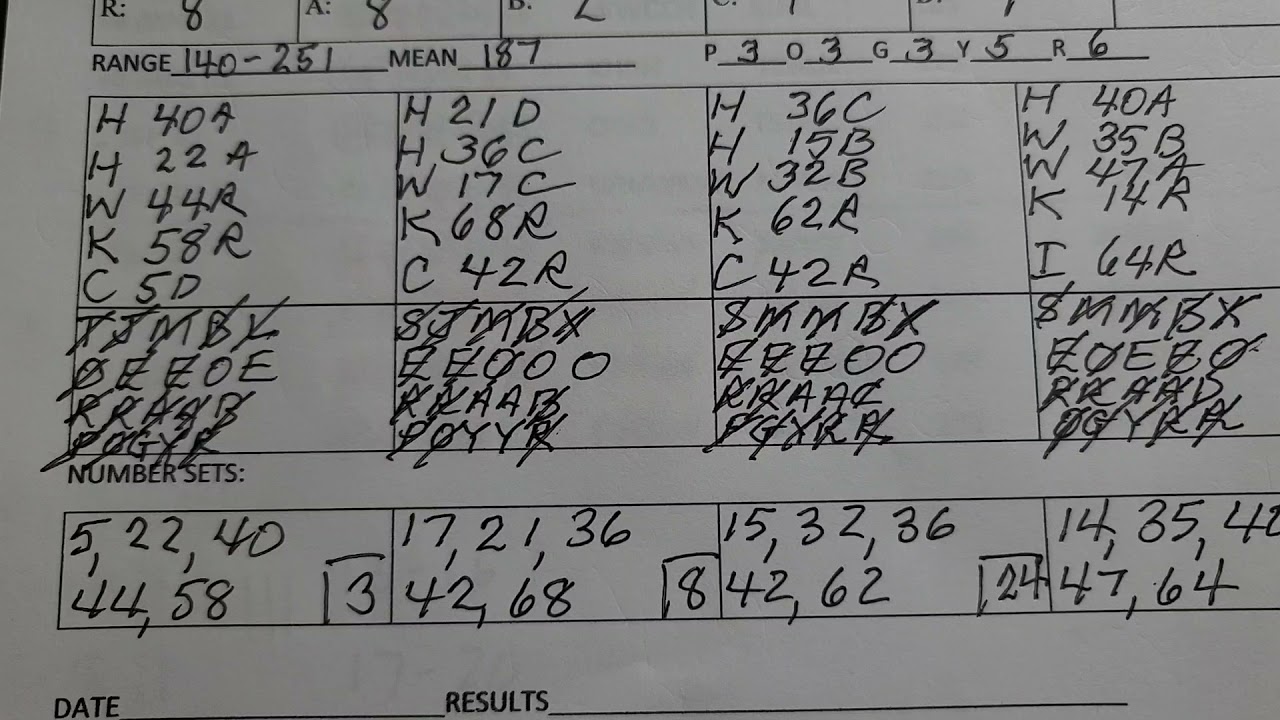 R: 8 A: 8 B: 2
RANGE 140-251 MEAN 187 P 3 O 3 G 3 Y 5 R 6
H 40A
H 22A
W 44R
K 58R
C 5D
H 21D
H 36C
W 17C
K 68R
C 42R
H 36C
H 15B
W 32B
K 62R
C 42R
H 40A
W 35B
W 47A
K 14R
I 64R
O E E O E
R R A A B
P O G Y R
S J M B X
E E O O O
R R A A B
P O Y Y R
S M M B X
E E E O O
R R A A C
P G Y R R
S M M B X
E O E E O
R R A A D
O G Y R R
NUMBER SETS:
5, 22, 40
44, 58 3
17, 21, 36
42, 68 8
15, 32, 36
42, 62 24
14, 35, 40
47, 64
DATE RESULTS